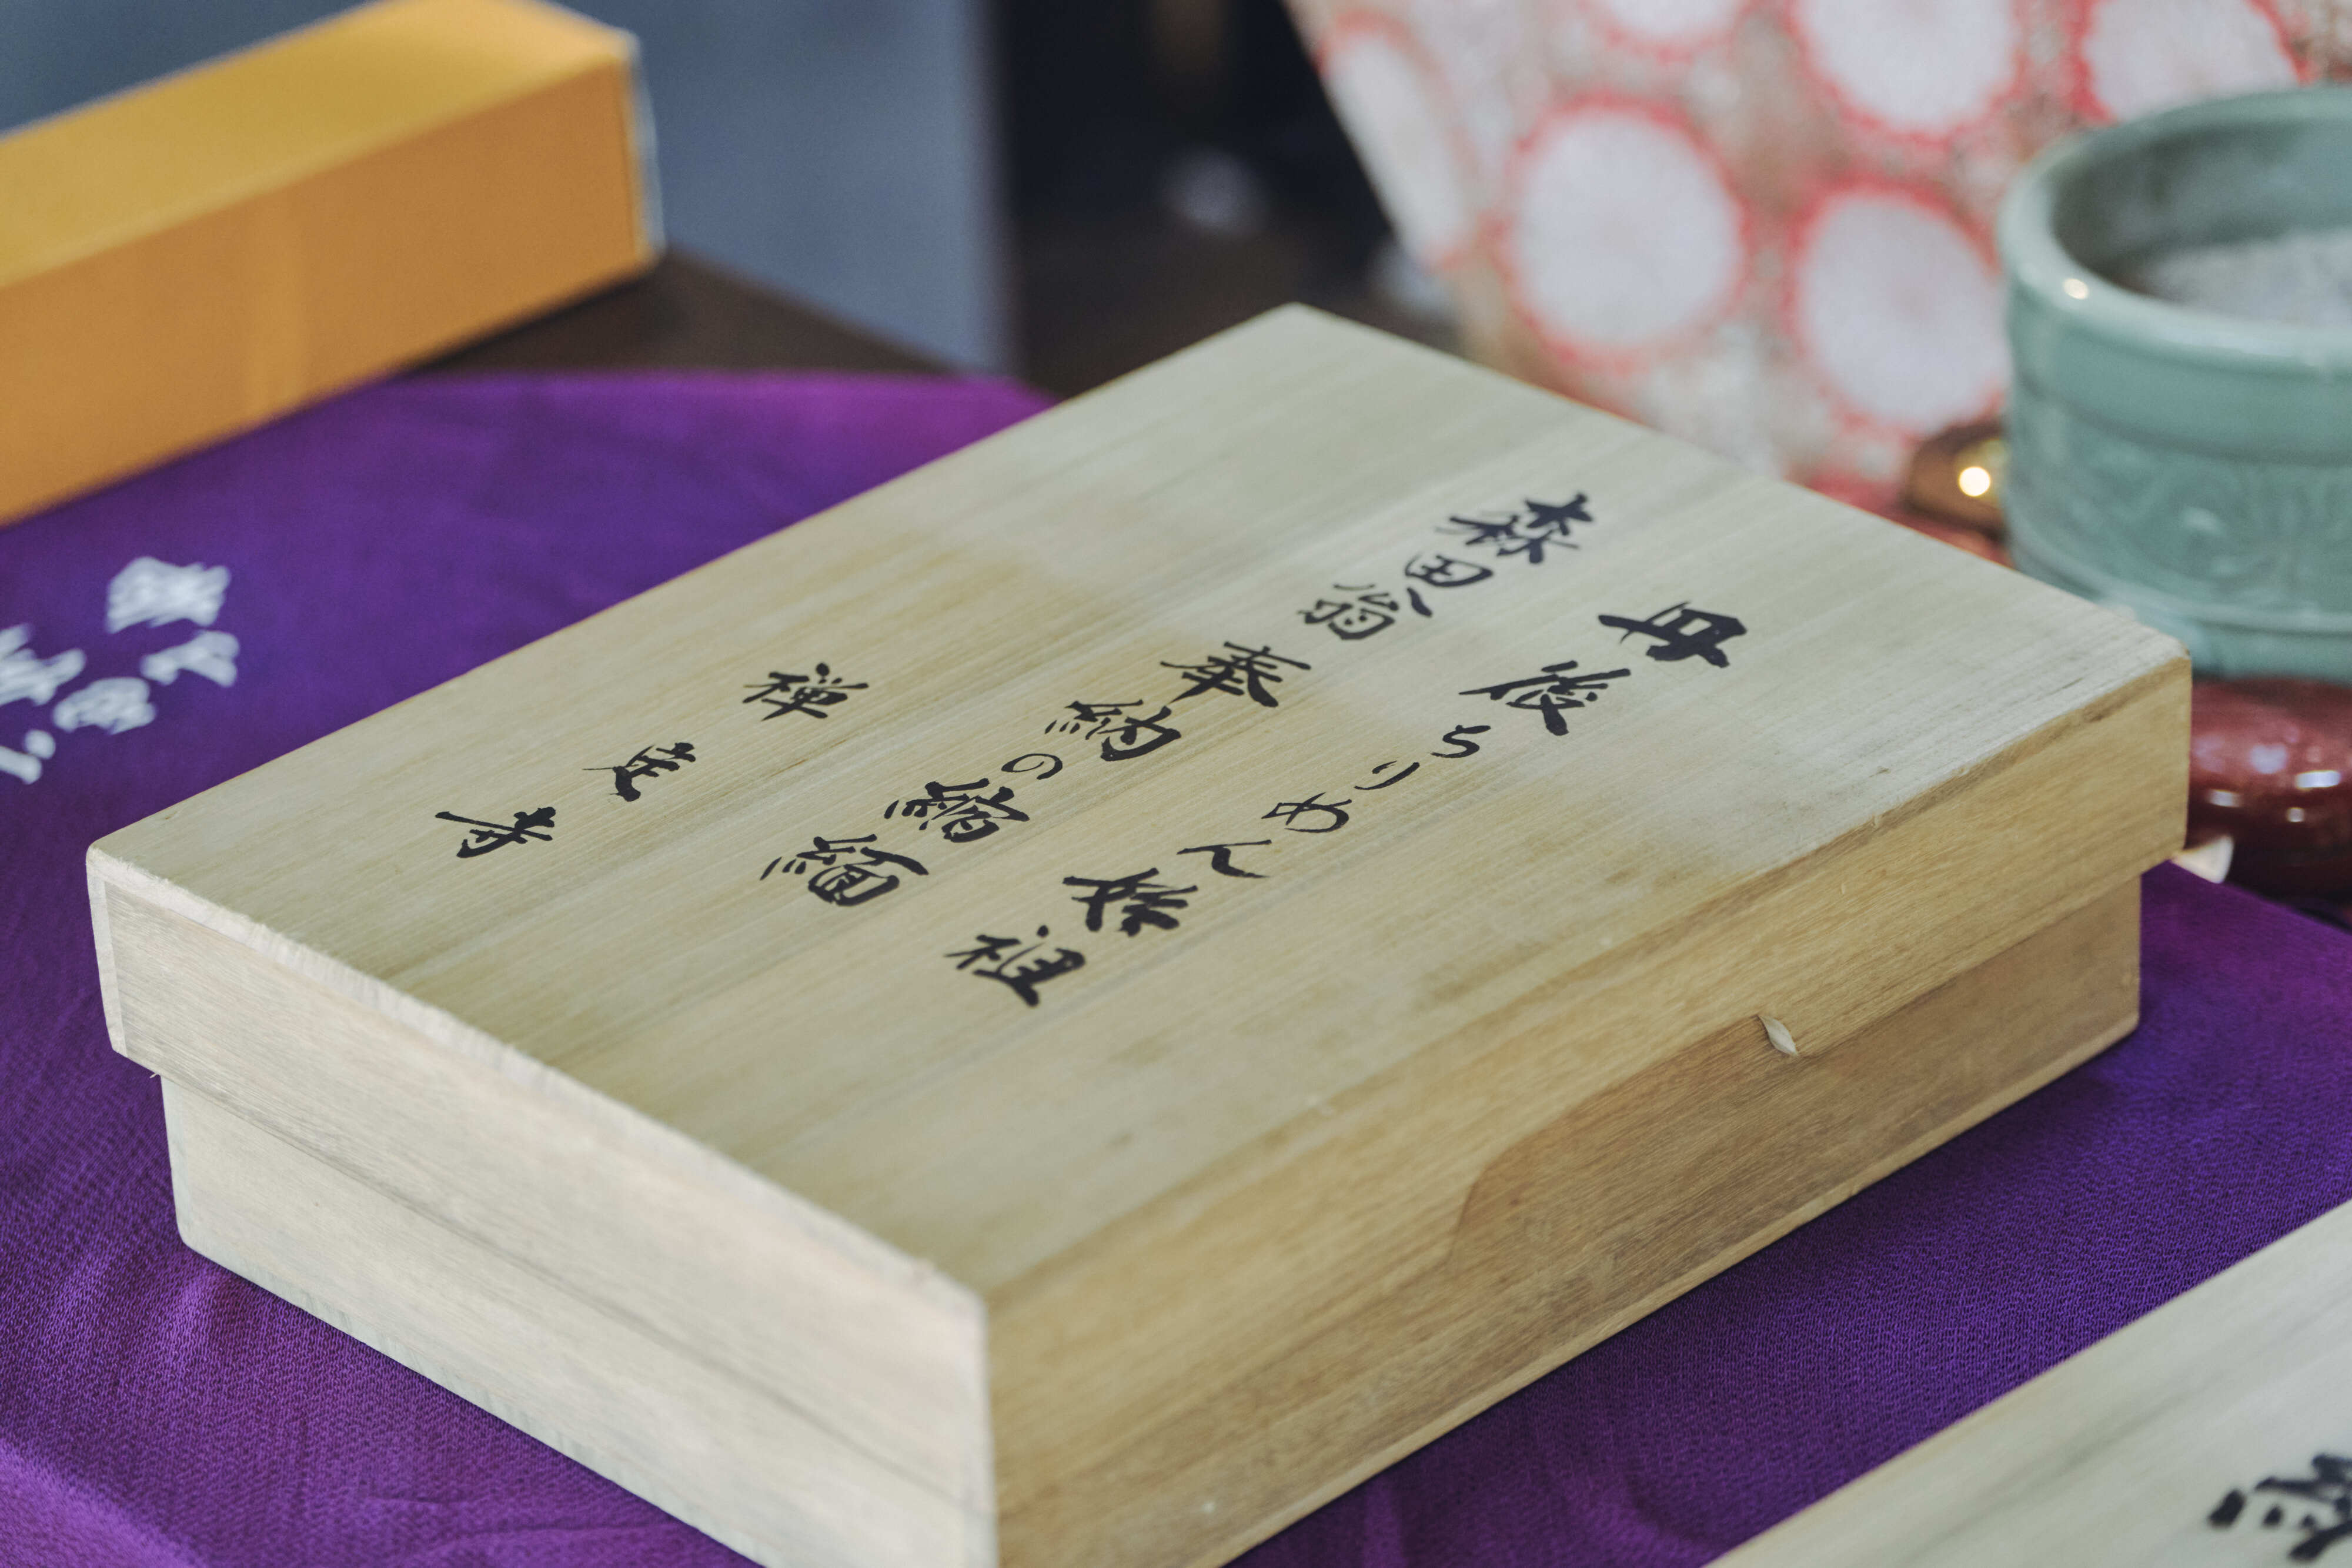 丹後ちりめん始祖
森田翁奉納の縮緬
禅定寺